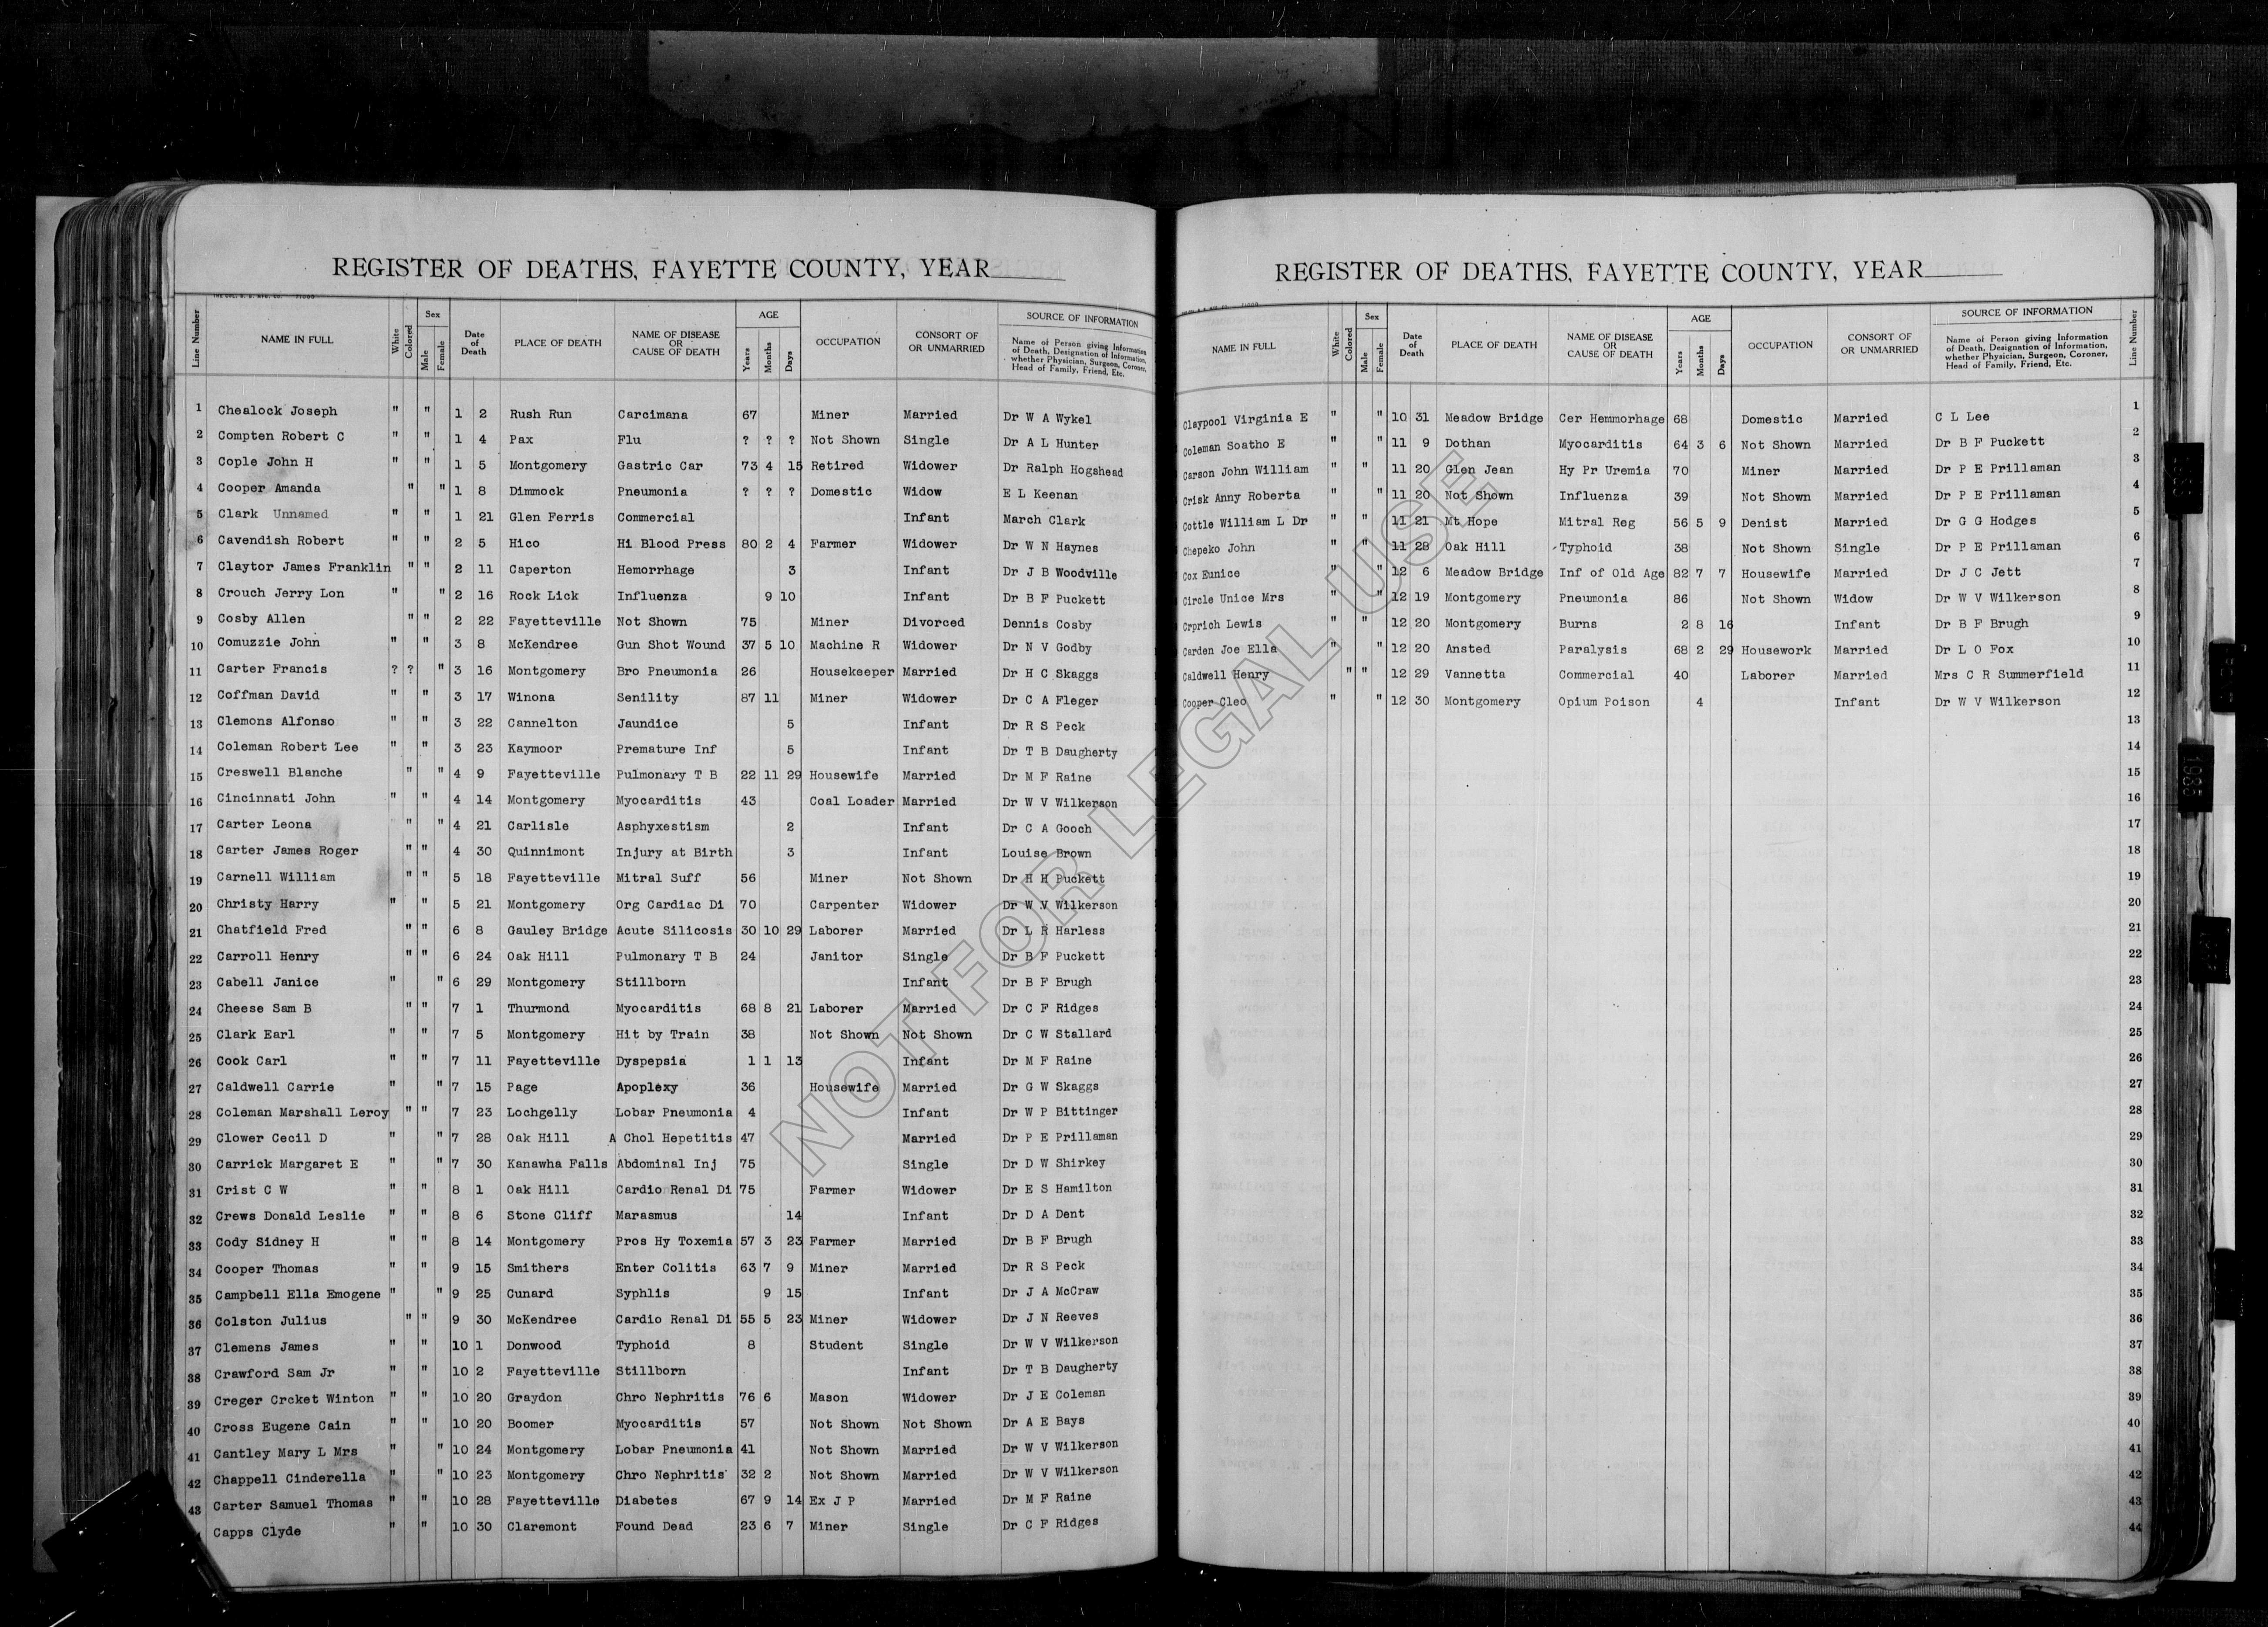 REGISTER OF DEATHS, FAYETTE COUNTY, YEAR
Line Number NAME IN FULL White Colored Sex Male Female Date of Death PLACE OF DEATH NAME OF DISEASE OR CAUSE OF DEATH AGE Years Months Days OCCUPATION CONSORT OF OR UNMARRIED SOURCE OF INFORMATION Name of Person giving Information of Death, Designation of Information, whether Physician, Surgeon, Coroner, Head of Family, Friend, Etc.
1 Chealock Joseph " " 1 2 Rush Run Carcimana 67 Miner Married Dr W A Wykel
2 Compten Robert C " " 1 4 Pax Flu ? ? ? Not Shown Single Dr A L Hunter
3 Cople John H " " 1 5 Montgomery Gastric Car 73 4 15 Retired Widower Dr Ralph Hogshead
4 Cooper Amanda " " 1 8 Dimmock Pneumonia ? ? ? Domestic Widow E L Keenan
5 Clark Unnamed " " 1 21 Glen Ferris Commercial Infant March Clark
6 Cavendish Robert " " 2 5 Hico Hi Blood Press 80 2 4 Farmer Widower Dr W N Haynes
7 Claytor James Franklin " " 2 11 Caperton Hemorrhage 3 Infant Dr J B Woodville
8 Crouch Jerry Lon " " 2 16 Rock Lick Influenza 9 10 Infant Dr B F Puckett
9 Cosby Allen " " 2 22 Fayetteville Not Shown 75 Miner Divorced Dennis Cosby
10 Comuzzie John " " 3 8 McKendree Gun Shot Wound 37 5 10 Machine R Widower Dr N V Godby
11 Carter Francis ? ? " 3 16 Montgomery Bro Pneumonia 26 Housekeeper Married Dr H C Skaggs
12 Coffman David " " 3 17 Winona Senility 87 11 Miner Widower Dr C A Fleger
13 Clemons Alfonso " " 3 22 Cannelton Jaundice 5 Infant Dr R S Peck
14 Coleman Robert Lee " " 3 23 Kaymoor Premature Inf 5 Infant Dr T B Daugherty
15 Creswell Blanche " " 4 9 Fayetteville Pulmonary T B 22 11 29 Housewife Married Dr M F Raine
16 Cincinnati John " " 4 14 Montgomery Myocarditis 43 Coal Loader Married Dr W V Wilkerson
17 Carter Leona " " 4 21 Carlisle Asphyxestism 2 Infant Dr C A Gooch
18 Carter James Roger " " 4 30 Quinnimont Injury at Birth 3 Infant Louise Brown
19 Carnell William " " 5 18 Fayetteville Mitral Suff 56 Miner Not Shown Dr H H Puckett
20 Christy Harry " " 5 21 Montgomery Org Cardiac Di 70 Carpenter Widower Dr W V Wilkerson
21 Chatfield Fred " " 6 8 Gauley Bridge Acute Silicosis 30 10 29 Laborer Married Dr L R Harless
22 Carroll Henry " " 6 24 Oak Hill Pulmonary T B 24 Janitor Single Dr B F Puckett
23 Cabell Janice " " 6 29 Montgomery Stillborn Infant Dr B F Brugh
24 Cheese Sam B " " 7 1 Thurmond Myocarditis 68 8 21 Laborer Married Dr C F Ridges
25 Clark Earl " " 7 5 Montgomery Hit by Train 38 Not Shown Not Shown Dr C W Stallard
26 Cook Carl " " 7 11 Fayetteville Dyspepsia 1 1 13 Infant Dr M F Raine
27 Caldwell Carrie " " 7 15 Page Apoplexy 36 Housewife Married Dr G W Skaggs
28 Coleman Marshall Leroy " " 7 23 Lochgelly Lobar Pneumonia 4 Infant Dr W P Bittinger
29 Clower Cecil D " " 7 28 Oak Hill A Chol Hepetitis 47 Married Dr P E Prillaman
30 Carrick Margaret E " " 7 30 Kanawha Falls Abdominal Inj 75 Single Dr D W Shirkey
31 Crist C W " " 8 1 Oak Hill Cardio Renal Di 75 Farmer Widower Dr E S Hamilton
32 Crews Donald Leslie " " 8 6 Stone Cliff Marasmus 14 Infant Dr D A Dent
33 Cody Sidney H " " 8 14 Montgomery Pros Hy Toxemia 57 3 23 Farmer Married Dr B F Brugh
34 Cooper Thomas " " 9 15 Smithers Enter Colitis 63 7 9 Miner Married Dr R S Peck
35 Campbell Ella Emogene " " 9 25 Cunard Syphlis 9 15 Infant Dr J A McCraw
36 Colston Julius " " 9 30 McKendree Cardio Renal Di 55 5 23 Miner Widower Dr J N Reeves
37 Clemens James " " 10 1 Donwood Typhoid 8 Student Single Dr W V Wilkerson
38 Crawford Sam Jr " " 10 2 Fayetteville Stillborn Infant Dr T B Daugherty
39 Creger Crcket Winton " " 10 20 Graydon Chro Nephritis 76 6 Mason Widower Dr J E Coleman
40 Cross Eugene Cain " " 10 20 Boomer Myocarditis 57 Not Shown Not Shown Dr A E Bays
41 Cantley Mary L Mrs " " 10 24 Montgomery Lobar Pneumonia 41 Not Shown Married Dr W V Wilkerson
42 Chappell Cinderella " " 10 23 Montgomery Chro Nephritis 32 2 Not Shown Married Dr W V Wilkerson
43 Carter Samuel Thomas " " 10 28 Fayetteville Diabetes 67 9 14 Ex J P Married Dr M F Raine
Capps Clyde " " 10 30 Claremont Found Dead 23 6 7 Miner Single Dr C F Ridges
REGISTER OF DEATHS, FAYETTE COUNTY, YEAR
NAME IN FULL White Colored Sex Male Female Date of Death PLACE OF DEATH NAME OF DISEASE OR CAUSE OF DEATH AGE Years Months Days OCCUPATION CONSORT OF OR UNMARRIED SOURCE OF INFORMATION Name of Person giving Information of Death, Designation of Information, whether Physician, Surgeon, Coroner, Head of Family, Friend, Etc. Line Number
Claypool Virginia E " " 10 31 Meadow Bridge Cer Hemmorhage 68 Domestic Married C L Lee 1
Coleman Soatho E " " 11 9 Dothan Myocarditis 64 3 6 Not Shown Married Dr B F Puckett 2
Carson John William " " 11 20 Glen Jean Hy Pr Uremia 70 Miner Married Dr P E Prillaman 3
Crisk Anny Roberta " " 11 20 Not Shown Influenza 39 Not Shown Married Dr P E Prillaman 4
Cottle William L Dr " " 11 21 Mt Hope Mitral Reg 56 5 9 Denist Married Dr G G Hodges 5
Chepeko John " " 11 28 Oak Hill Typhoid 38 Not Shown Single Dr P E Prillaman 6
Cox Eunice " " 12 6 Meadow Bridge Inf of Old Age 82 7 7 Housewife Married Dr J C Jett 7
Circle Unice Mrs " " 12 19 Montgomery Pneumonia 86 Not Shown Widow Dr W V Wilkerson 8
Crprich Lewis " " 12 20 Montgomery Burns 2 8 16 Infant Dr B F Brugh 9
Carden Joe Ella " " 12 20 Ansted Paralysis 68 2 29 Housework Married Dr L O Fox 10
Caldwell Henry " " 12 29 Vannetta Commercial 40 Laborer Married Mrs C R Summerfield 11
Cooper Cleo " " 12 30 Montgomery Opium Poison 4 Infant Dr W V Wilkerson 12
13
14
15
16
17
18
19
20
21
22
23
24
25
26
27
28
29
30
31
32
33
34
35
36
37
38
39
40
41
42
43
44
NOT FOR LEGAL USE
1986